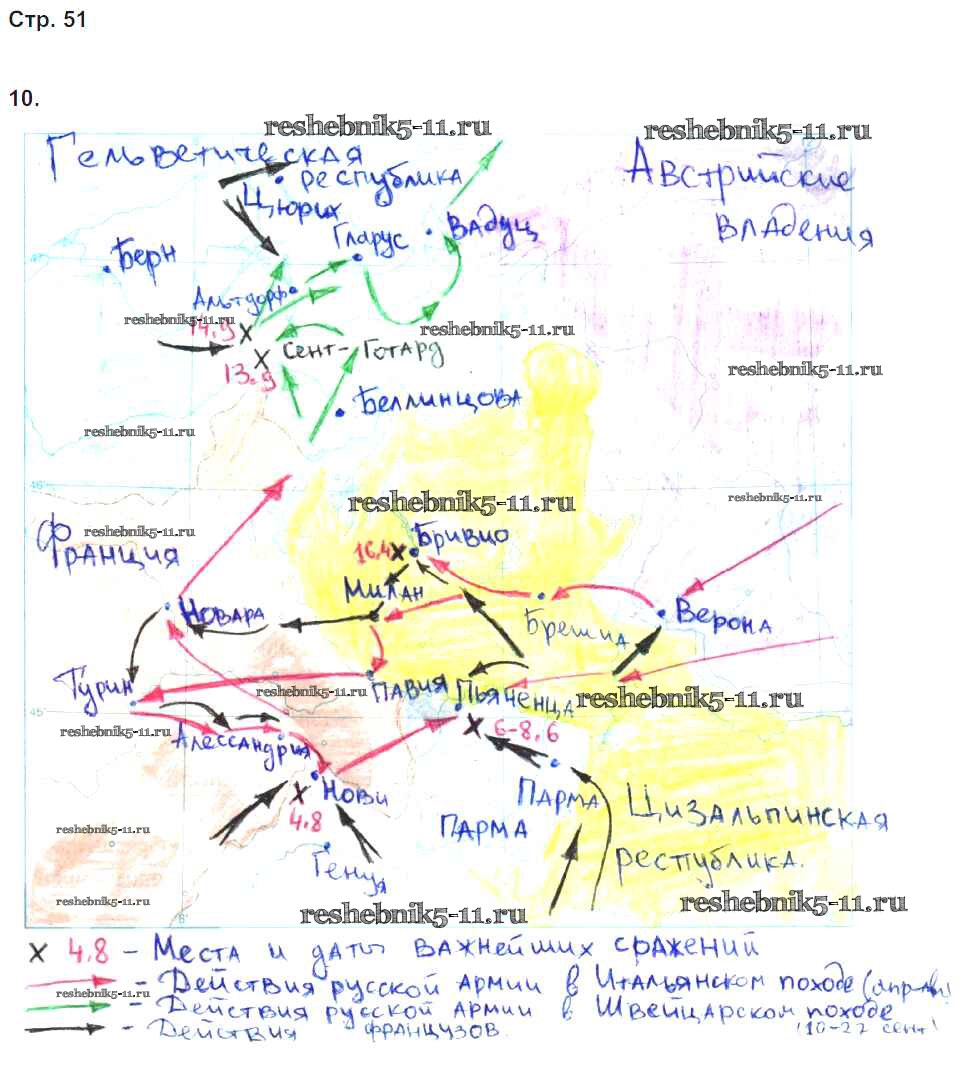 Стр. 51
10.
reshebnik5-11.ru
reshebnik5-11.ru
Гельветическая
республика
Австрийские
владения
Цюрих
Гларус
Вадуц
Берн
Альтдорф
reshebnik5-11.ru
14.9
reshebnik5-11.ru
Сент-Готард
13.9
reshebnik5-11.ru
Беллинцова
reshebnik5-11.ru
46°
reshebnik5-11.ru
reshebnik5-11.ru
Франция
reshebnik5-11.ru
Бривио
16.4
Милан
Новара
Брешиа
Верона
Турин
reshebnik5-11.ru
Павия
Пьяченца
reshebnik5-11.ru
45°
reshebnik5-11.ru
Алессандрия
6-8.6
Нови
Парма
Парма
Цизальпинская
республика.
4.8
reshebnik5-11.ru
Генуя
reshebnik5-11.ru
reshebnik5-11.ru
reshebnik5-11.ru
8°
× 4.8 - Места и даты важнейших сражений
- Действия русской армии в Итальянском походе
reshebnik5-11.ru
- Действия русской армии в Швейцарском походе
- Действия французов.
10-27 сент